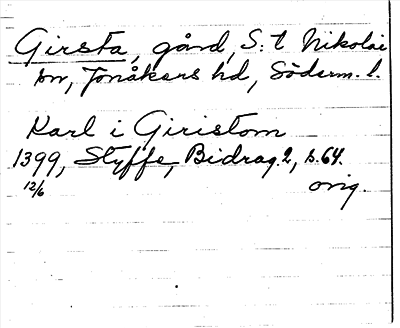 Girsta, gård, S:t Nikolai
sn, Jonåkers hd, Söderm. l.
Karl i Giristom
1399, Styffe, Bidrag 2, s. 64.
12/6 orig.